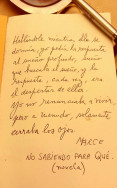 Hablándole mientras ella se
dormía, yo pedía la respuesta
al sueño profundo, sueño
que buscaba el sueño, y la
respuesta, cada vez, era
el despertar de ella.
No
renunciaba a vivir,
pero a menudo, solamente
cerraba los ojos
MARCE
NO SABIENDO PARA QUÉ.
(novela)